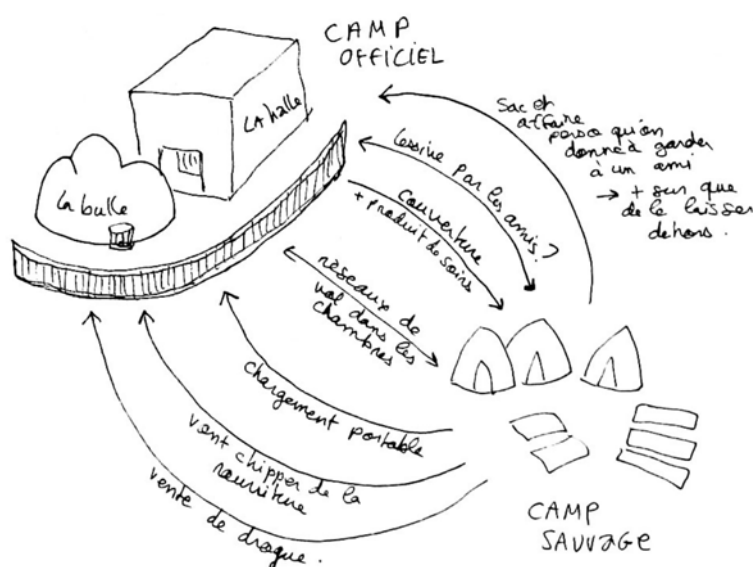 CAMP
OFFICIEL
LA halle
La bulle
Sac et
affaire
perso qu'on
donne à garder
à un ami
→ + sur que
de le laisser
dehors.
lessive par les amis?
couverture
+ produit de soins
réseaux de
vol dans les
chambres
chargement portable
vont chipper de la
nourriture
vente de drogue.
CAMP
SAUVAGE